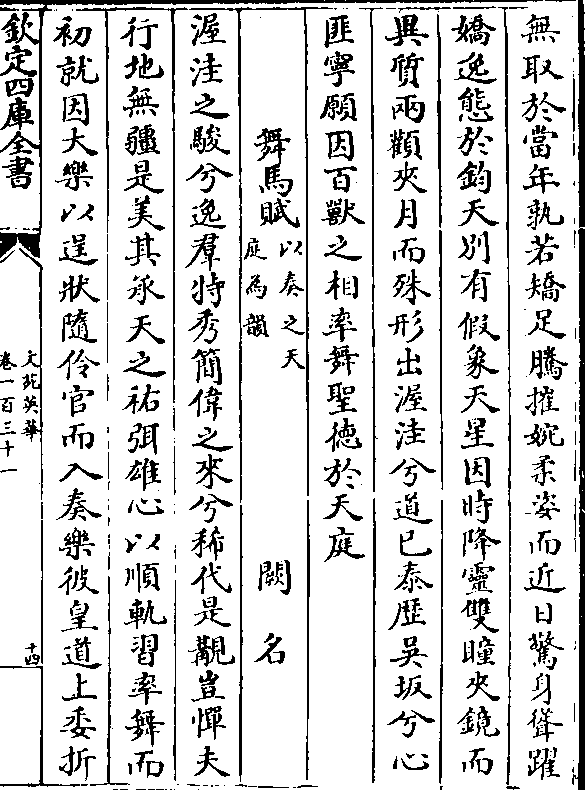 無取於當年孰若矯足騰摧婉柔姿而近日驚身聳躍
嬌逸態於鈞天別有假象天星因時降靈雙瞳夾鏡而
異質兩顴夾月而殊形出渥洼兮道已泰歷吳坂兮心
匪寧願因百獸之相率舞聖德於天庭
舞馬賦以奏之天庭為韻
闕名
渥洼之駿兮逸羣特秀簡偉之來兮稀代是覯豈憚夫
行地無疆是美其承天之祐弭雄心以順軌習率舞而
初就因大樂以逞狀隨伶官而入奏樂彼皇道上委折
欽定四庫全書
文苑英華
卷一百三十一
十四